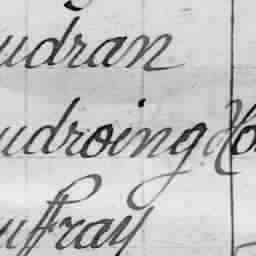 udran
udroing Ho
uffray